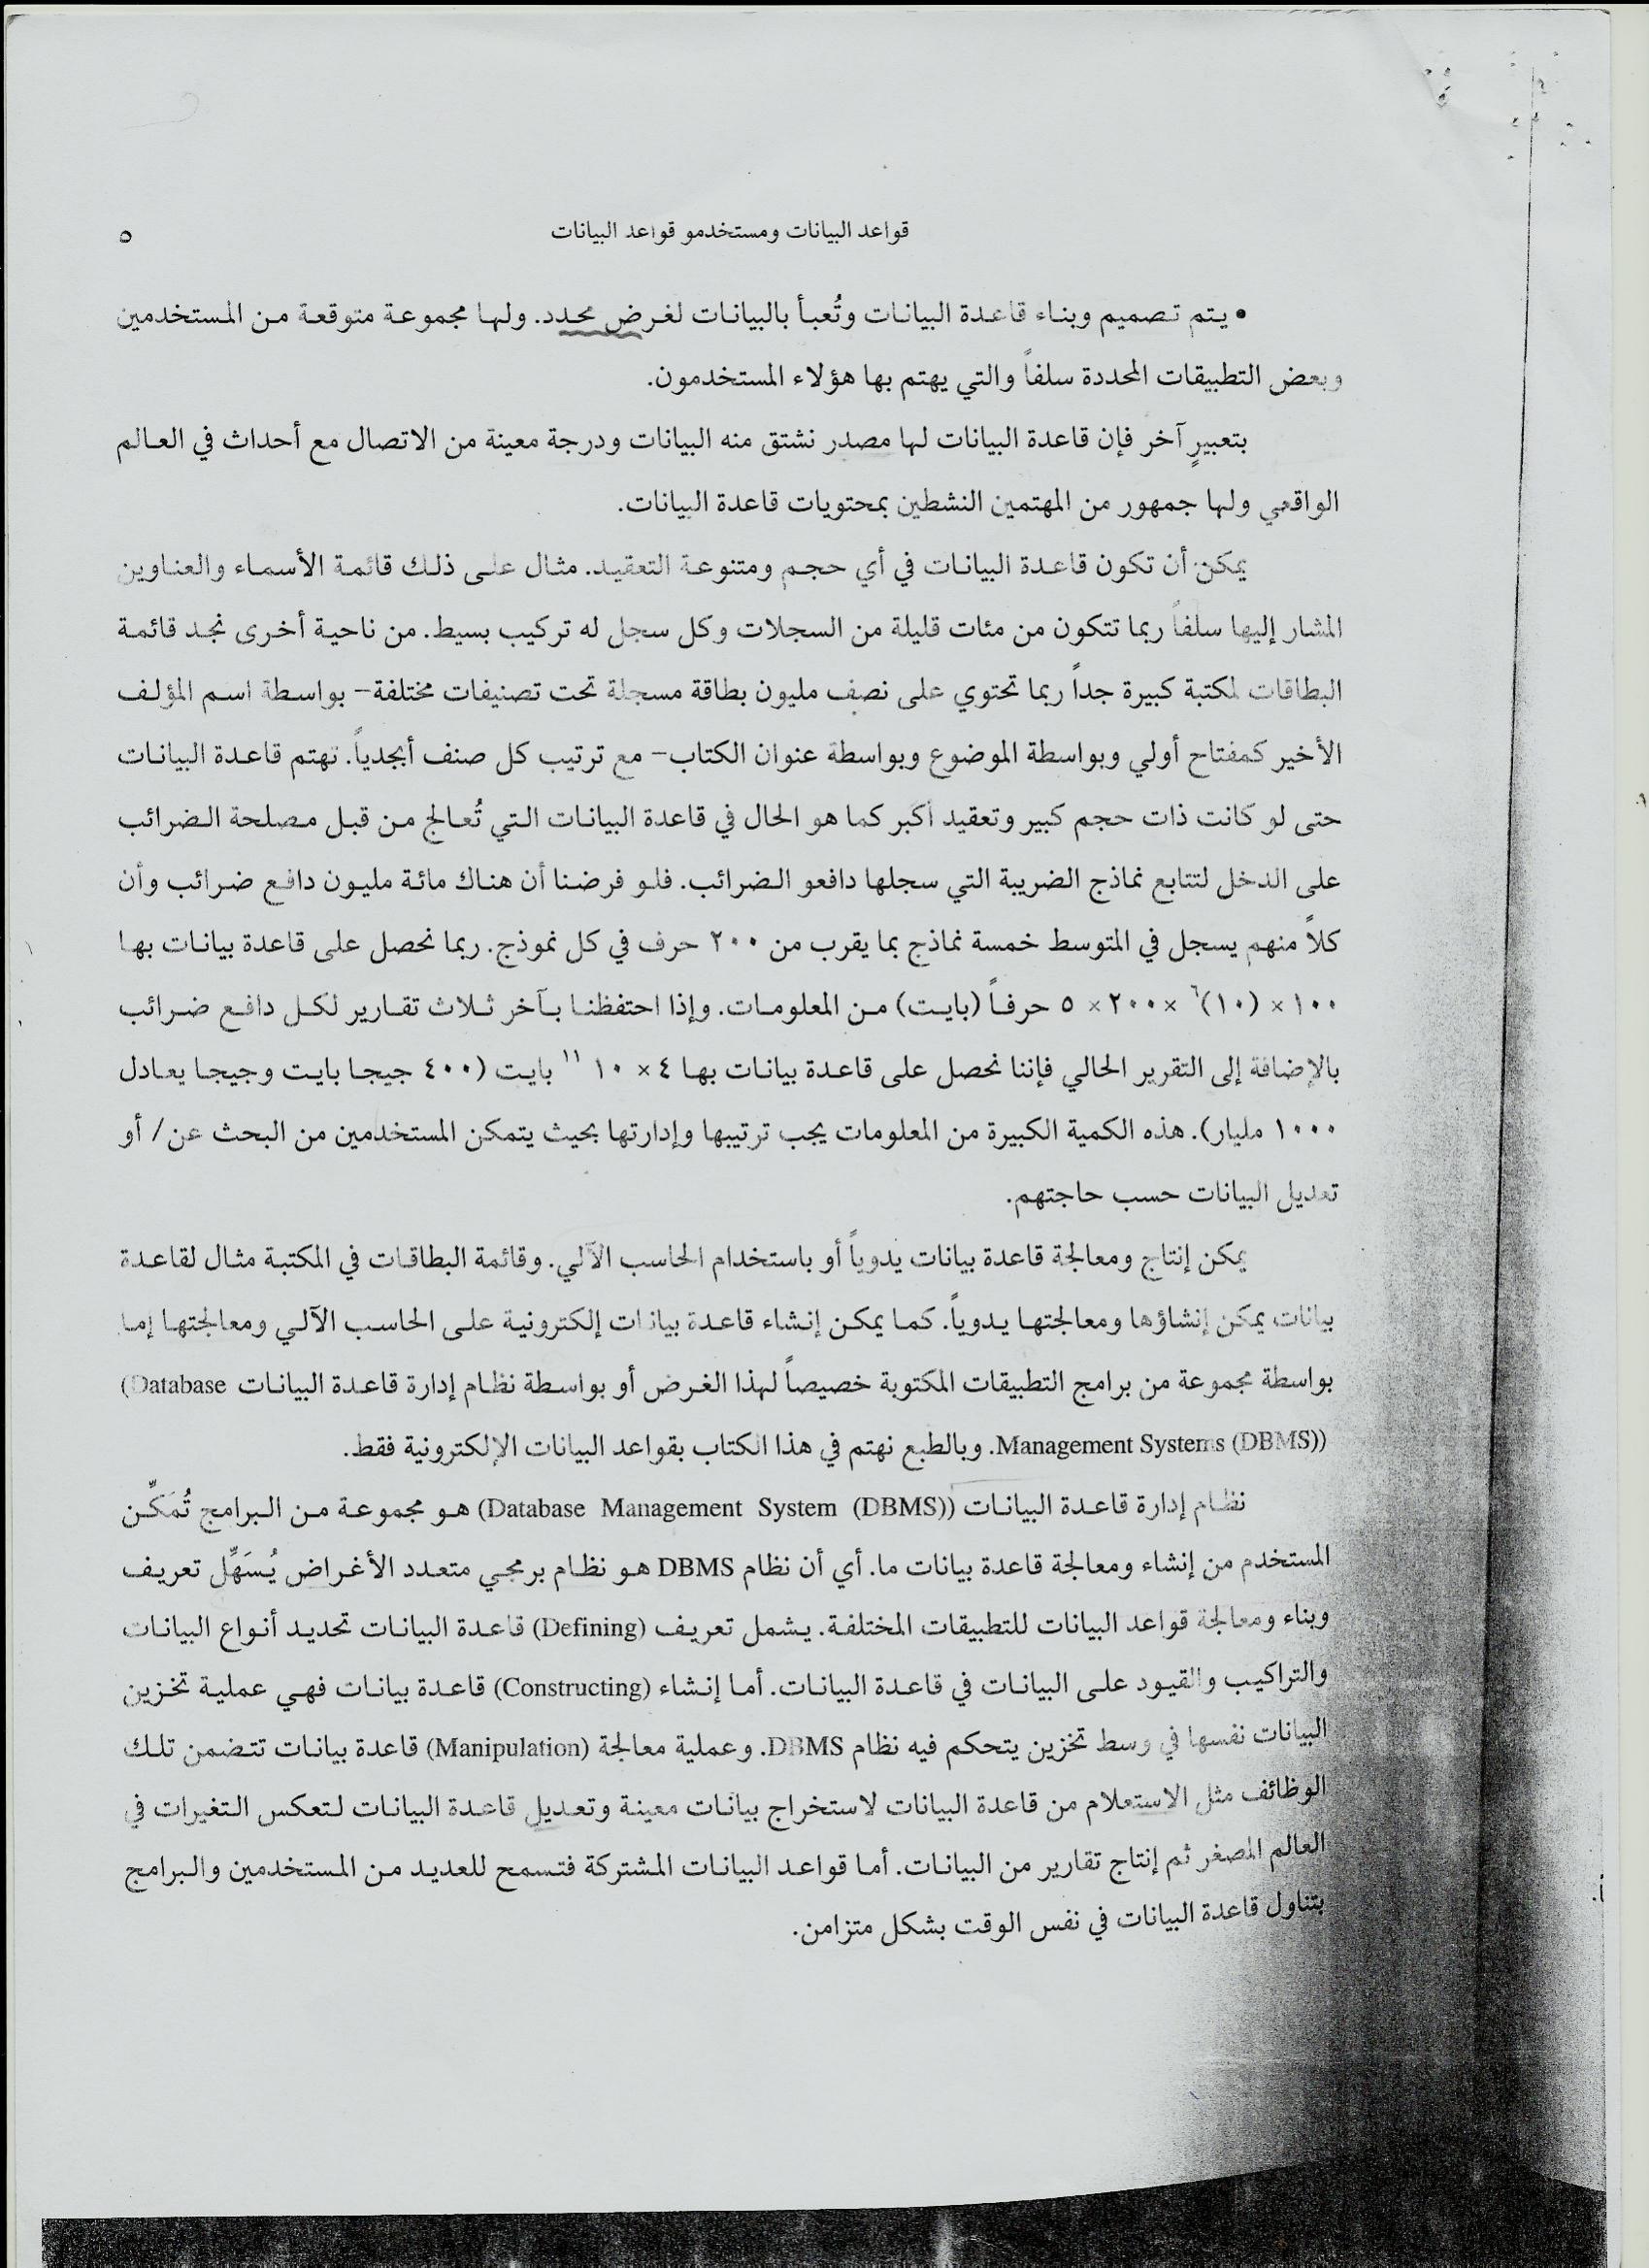 قواعد البيانات ومستخدمو قواعد البيانات ٥
• يتم تصميم وبناء قاعدة البيانات وتُعبأ بالبيانات لغرض محدد. ولها مجموعة متوقعة من المستخدمين
وبعض التطبيقات المحددة سلفاً والتي يهتم بها هؤلاء المستخدمون.
بتعبيرٍ آخر فإن قاعدة البيانات لها مصدر نشتق منه البيانات ودرجة معينة من الاتصال مع أحداث في العالم
الواقعي ولها جمهور من المهتمين النشطين بمحتويات قاعدة البيانات.
يمكن أن تكون قاعدة البيانات في أي حجم ومتنوعة التعقيد. مثال على ذلك قائمة الأسماء والعناوين
المشار إليها سلفاً ربما تتكون من مئات قليلة من السجلات وكل سجل له تركيب بسيط. من ناحية أخرى نجد قائمة
البطاقات لمكتبة كبيرة جداً ربما تحتوي على نصف مليون بطاقة مسجلة تحت تصنيفات مختلفة- بواسطة اسم المؤلف
الأخير كمفتاح أولي وبواسطة الموضوع وبواسطة عنوان الكتاب- مع ترتيب كل صنف أبجدياً. تهتم قاعدة البيانات
حتى لو كانت ذات حجم كبير وتعقيد أكبر كما هو الحال في قاعدة البيانات التي تُعالج من قبل مصلحة الضرائب
على الدخل لتتابع نماذج الضريبة التي سجلها دافعو الضرائب. فلو فرضنا أن هناك مائة مليون دافع ضرائب وأن
كلاً منهم يسجل في المتوسط خمسة نماذج بما يقرب من ٢٠٠ حرف في كل نموذج. ربما نحصل على قاعدة بيانات بها
١٠٠× (١٠)⁶ ×٢٠٠× ٥ حرفاً (بايت) من المعلومات. وإذا احتفظنا بآخر ثلاث تقارير لكل دافع ضرائب
بالإضافة إلى التقرير الحالي فإننا نحصل على قاعدة بيانات بها ٤× ١٠ ¹¹ بايت (٤٠٠ جيجا بايت وجيجا يعادل
١٠٠٠ مليار). هذه الكمية الكبيرة من المعلومات يجب ترتيبها وإدارتها بحيث يتمكن المستخدمين من البحث عن/ أو
تعديل البيانات حسب حاجتهم.
يمكن إنتاج ومعالجة قاعدة بيانات يدوياً أو باستخدام الحاسب الآلي. وقائمة البطاقات في المكتبة مثال لقاعدة
بيانات يمكن إنشاؤها ومعالجتها يدوياً. كما يمكن إنشاء قاعدة بيانات إلكترونية على الحاسب الآلي ومعالجتها إما
بواسطة مجموعة من برامج التطبيقات المكتوبة خصيصاً لهذا الغرض أو بواسطة نظام إدارة قاعدة البيانات (Database
Management Systems (DBMS)). وبالطبع نهتم في هذا الكتاب بقواعد البيانات الإلكترونية فقط.
نظام إدارة قاعدة البيانات (Database Management System (DBMS)) هو مجموعة من البرامج تُمَكِّن
المستخدم من إنشاء ومعالجة قاعدة بيانات ما. أي أن نظام DBMS هو نظام برمجي متعدد الأغراض يُسَهِّل تعريف
وبناء ومعالجة قواعد البيانات للتطبيقات المختلفة. يشمل تعريف (Defining) قاعدة البيانات تحديد أنواع البيانات
والتراكيب والقيود على البيانات في قاعدة البيانات. أما إنشاء (Constructing) قاعدة بيانات فهي عملية تخزين
البيانات نفسها في وسط تخزين يتحكم فيه نظام DBMS. وعملية معالجة (Manipulation) قاعدة بيانات تتضمن تلك
الوظائف مثل الاستعلام من قاعدة البيانات لاستخراج بيانات معينة وتعديل قاعدة البيانات لتعكس التغيرات في
العالم المصغر ثم إنتاج تقارير من البيانات. أما قواعد البيانات المشتركة فتسمح للعديد من المستخدمين والبرامج
بتناول قاعدة البيانات في نفس الوقت بشكل متزامن.